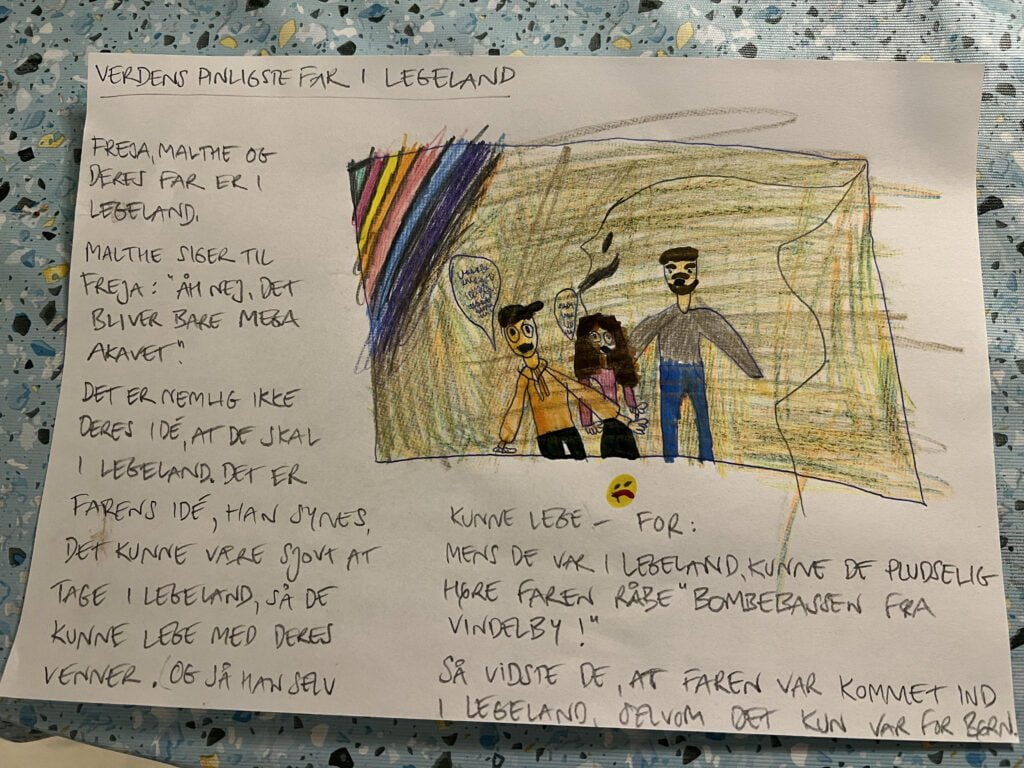 VERDENS PINLIGSTE FAR I LEGELAND
FREJA, MALTHE OG
DERES FAR ER I
LEGELAND.
MALTHE SIGER TIL
FREJA: "ÅH NEJ. DET
BLIVER BARE MEGA
AKAVET".
DET ER NEMLIG IKKE
DERES IDÉ, AT DE SKAL
I LEGELAND. DET ER
FARENS IDÉ, HAN SYNES,
DET KUNNE VÆRE SJOVT AT
TAGE I LEGELAND, SÅ DE
KUNNE LEGE MED DERES
VENNER. (OG SÅ HAN SELV
KUNNE LEGE – FOR:
MENS DE VAR I LEGELAND, KUNNE DE PLUDSELIG
HØRE FAREN RÅBE "BOMBEBASSEN FRA
VINDELBY!"
SÅ VIDSTE DE, AT FAREN VAR KOMMET IND
I LEGELAND, SELVOM DET KUN VAR FOR BØRN.